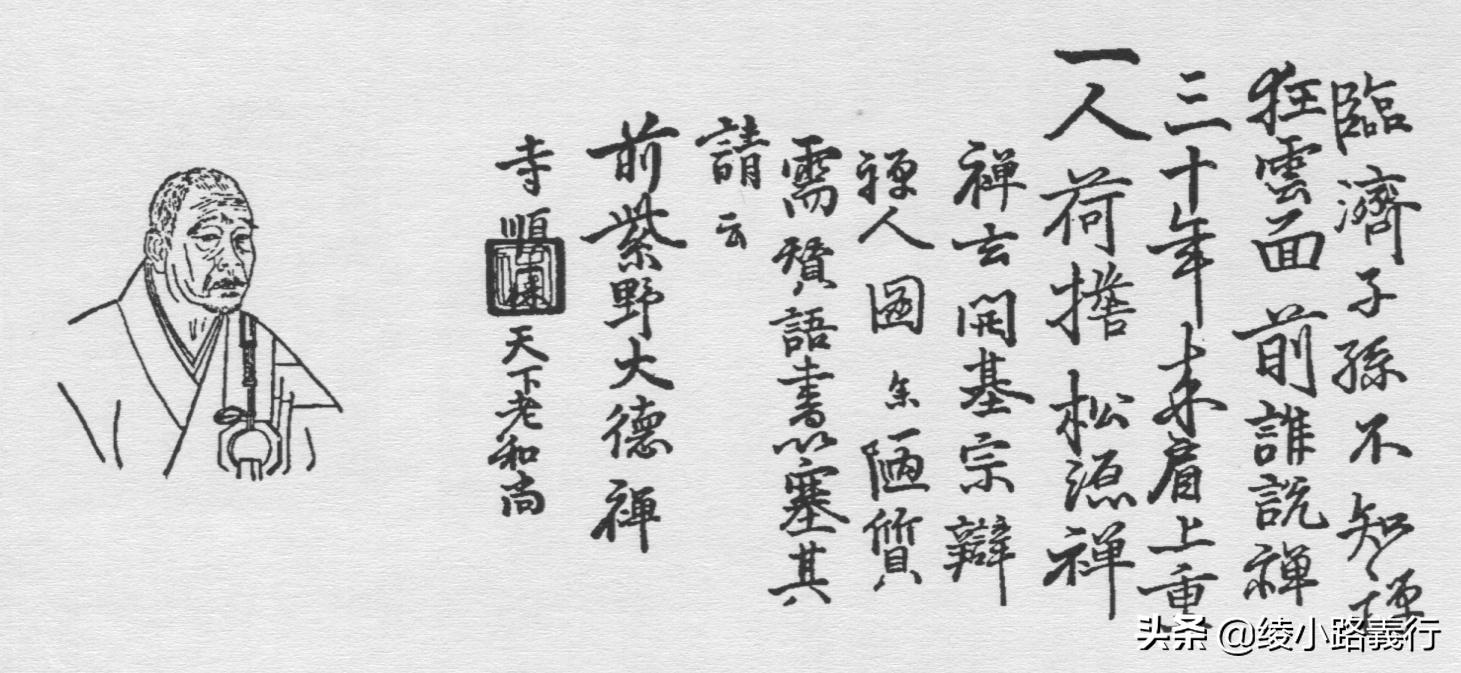 臨濟子孫不知禅
狂雲面前誰説禅
三十年来肩上重
一人荷擔松源禅
禅玄開基宗辯
禅人圖余陋質
需賛語書以塞其
請云
前紫野大德禅
寺順天下老和尚
头条 @绫小路義行